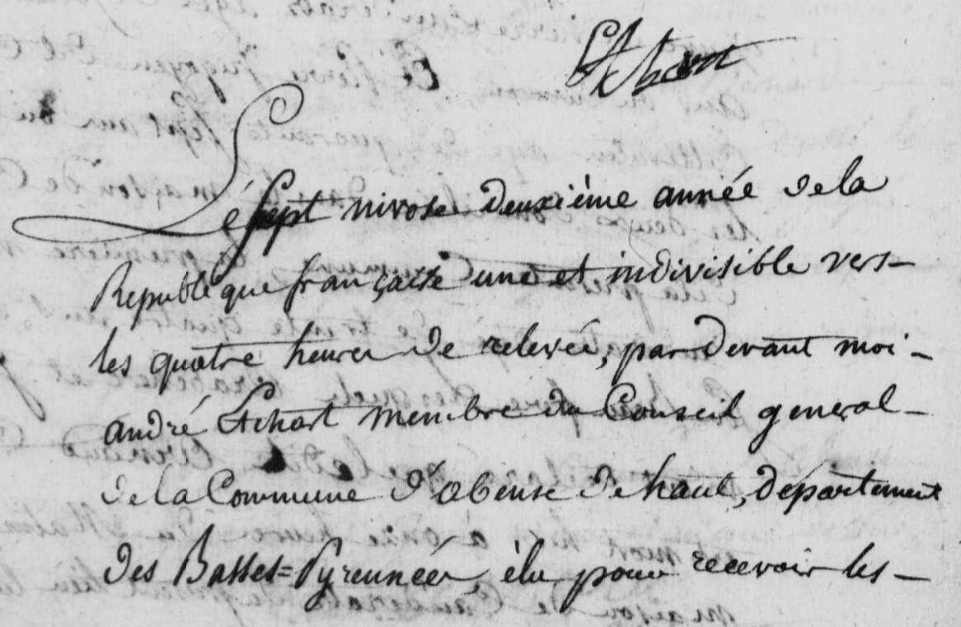 Etchart
Le sept nivose deuxième année de la
Republique française une et indivisible vers
les quatre heures de relevée, par devant moi
andré Etchart membre du Conseil general
de la Commune d'abense de haut, departement
des Basses=Pyrennées, élu pour recevoir les